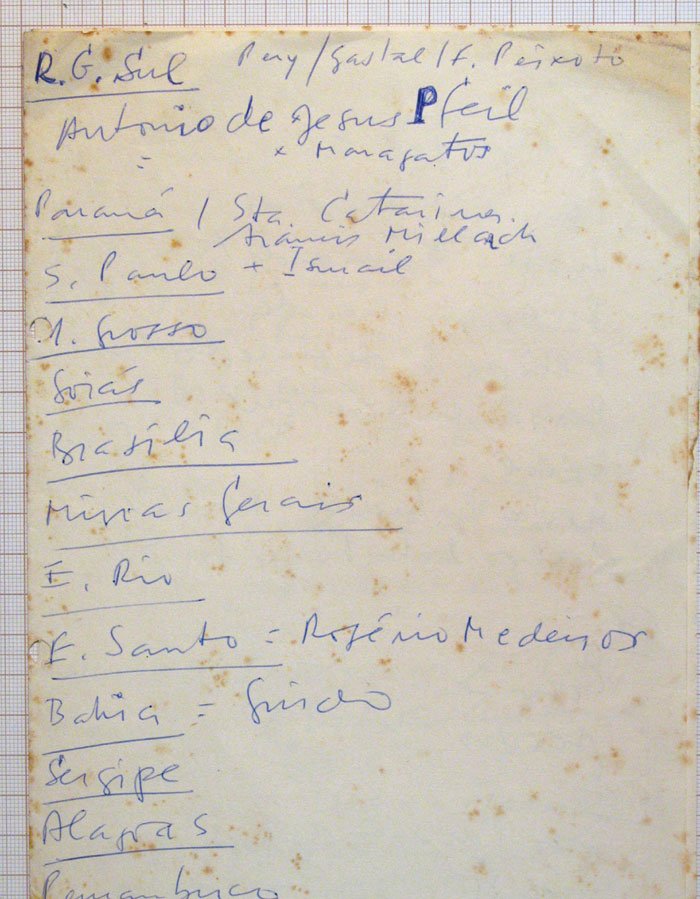 R.G. Sul Pery / Gastal / F. Peixoto
Antonio de Jesus Pfeil
x Maragatos
Paraná / Sta. Catarina
Aramis Millach
S. Paulo + Ismail
M. Grosso
Goiás
Brasília
Minas Gerais
E. Rio
E. Santo = Rogério Medeiros
Bahia = Guido
Sergipe
Alagoas
Pernambuco